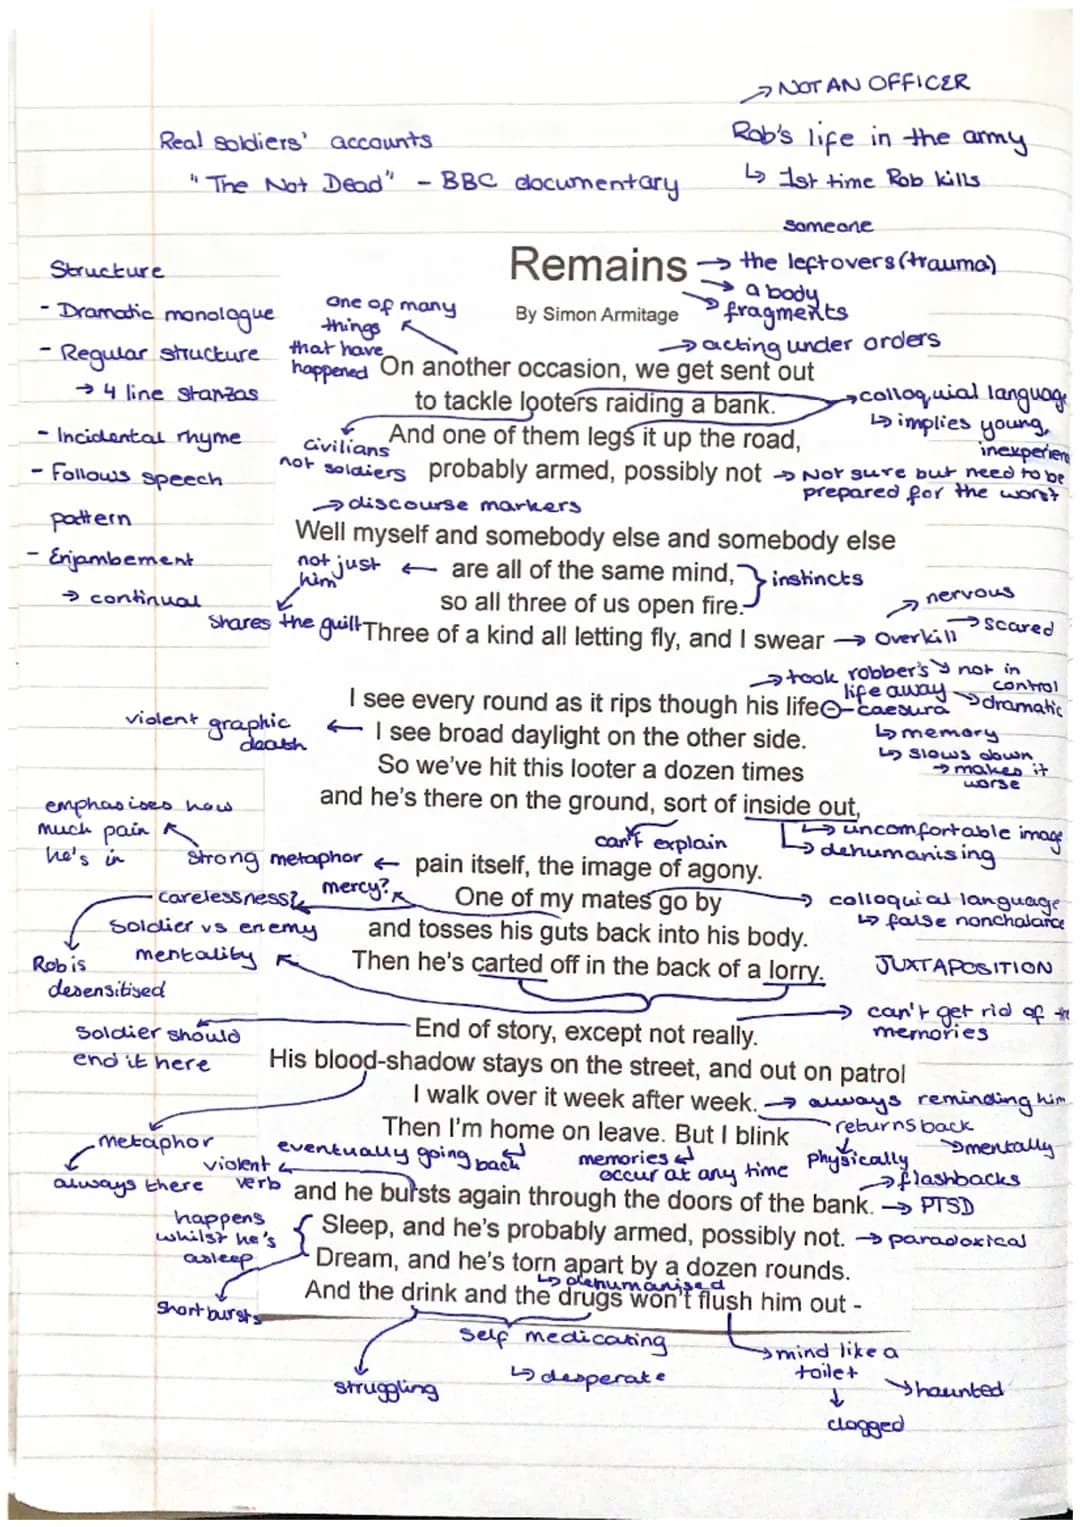 → NOT AN OFFICER
Real soldiers' accounts
Rob's life in the army
"The Not Dead" - BBC documentary
↳ 1st time Rob kills
someone
Structure
Remains → the leftovers (trauma)
→ a body
→ fragments
- Dramatic monologue
one of many
things
that have
happened
By Simon Armitage
→ acting under orders
- Regular structure
→ 4 line stanzas
On another occasion, we get sent out
to tackle looters raiding a bank.
→ colloquial language
↳ implies young,
inexperien
- Incidental rhyme
civilians
not soldiers
And one of them legs it up the road,
probably armed, possibly not → Not sure but need to be
prepared for the worst
- Follows speech
pattern
→ discourse markers
Well myself and somebody else and somebody else
- Enjambement
→ continual
not just
him
← are all of the same mind,
instincts
so all three of us open fire.
shares the guilt
Three of a kind all letting fly, and I swear → overkill
→ nervous
→ scared
↘ not in
control
→ took robber's
life away
I see every round as it rips though his life - caesura
→ dramatic
↳ memory
↳ slows down
→ makes it
worse
violent graphic
death
← I see broad daylight on the other side.
So we've hit this looter a dozen times
and he's there on the ground, sort of inside out,
can't explain
↳ uncomfortable image
↳ dehumanising
emphasises how
much pain
he's in
strong metaphor ← pain itself, the image of agony.
mercy?
carelessness?
One of my mates go by
→ colloquial language
↳ false nonchalance
Soldier vs enemy
mentality
and tosses his guts back into his body.
Then he's carted off in the back of a lorry.
JUXTAPOSITION
Rob is
desensitised
Soldier should
end it here
End of story, except not really.
→ can't get rid of the
memories
His blood-shadow stays on the street, and out on patrol
I walk over it week after week. → always reminding him
returns back
physically
→ mentally
Then I'm home on leave. But I blink
metaphor
always there
eventually going back
memories
occur at any time
→ flashbacks
violent
verb
and he bursts again through the doors of the bank. → PTSD
happens
whilst he's
asleep
Sleep, and he's probably armed, possibly not. → paradoxical
Dream, and he's torn apart by a dozen rounds.
↳ dehumanised
short bursts
And the drink and the drugs won't flush him out -
self medicating
↳ desperate
struggling
→ mind like a
toilet
→ haunted
↓
clogged